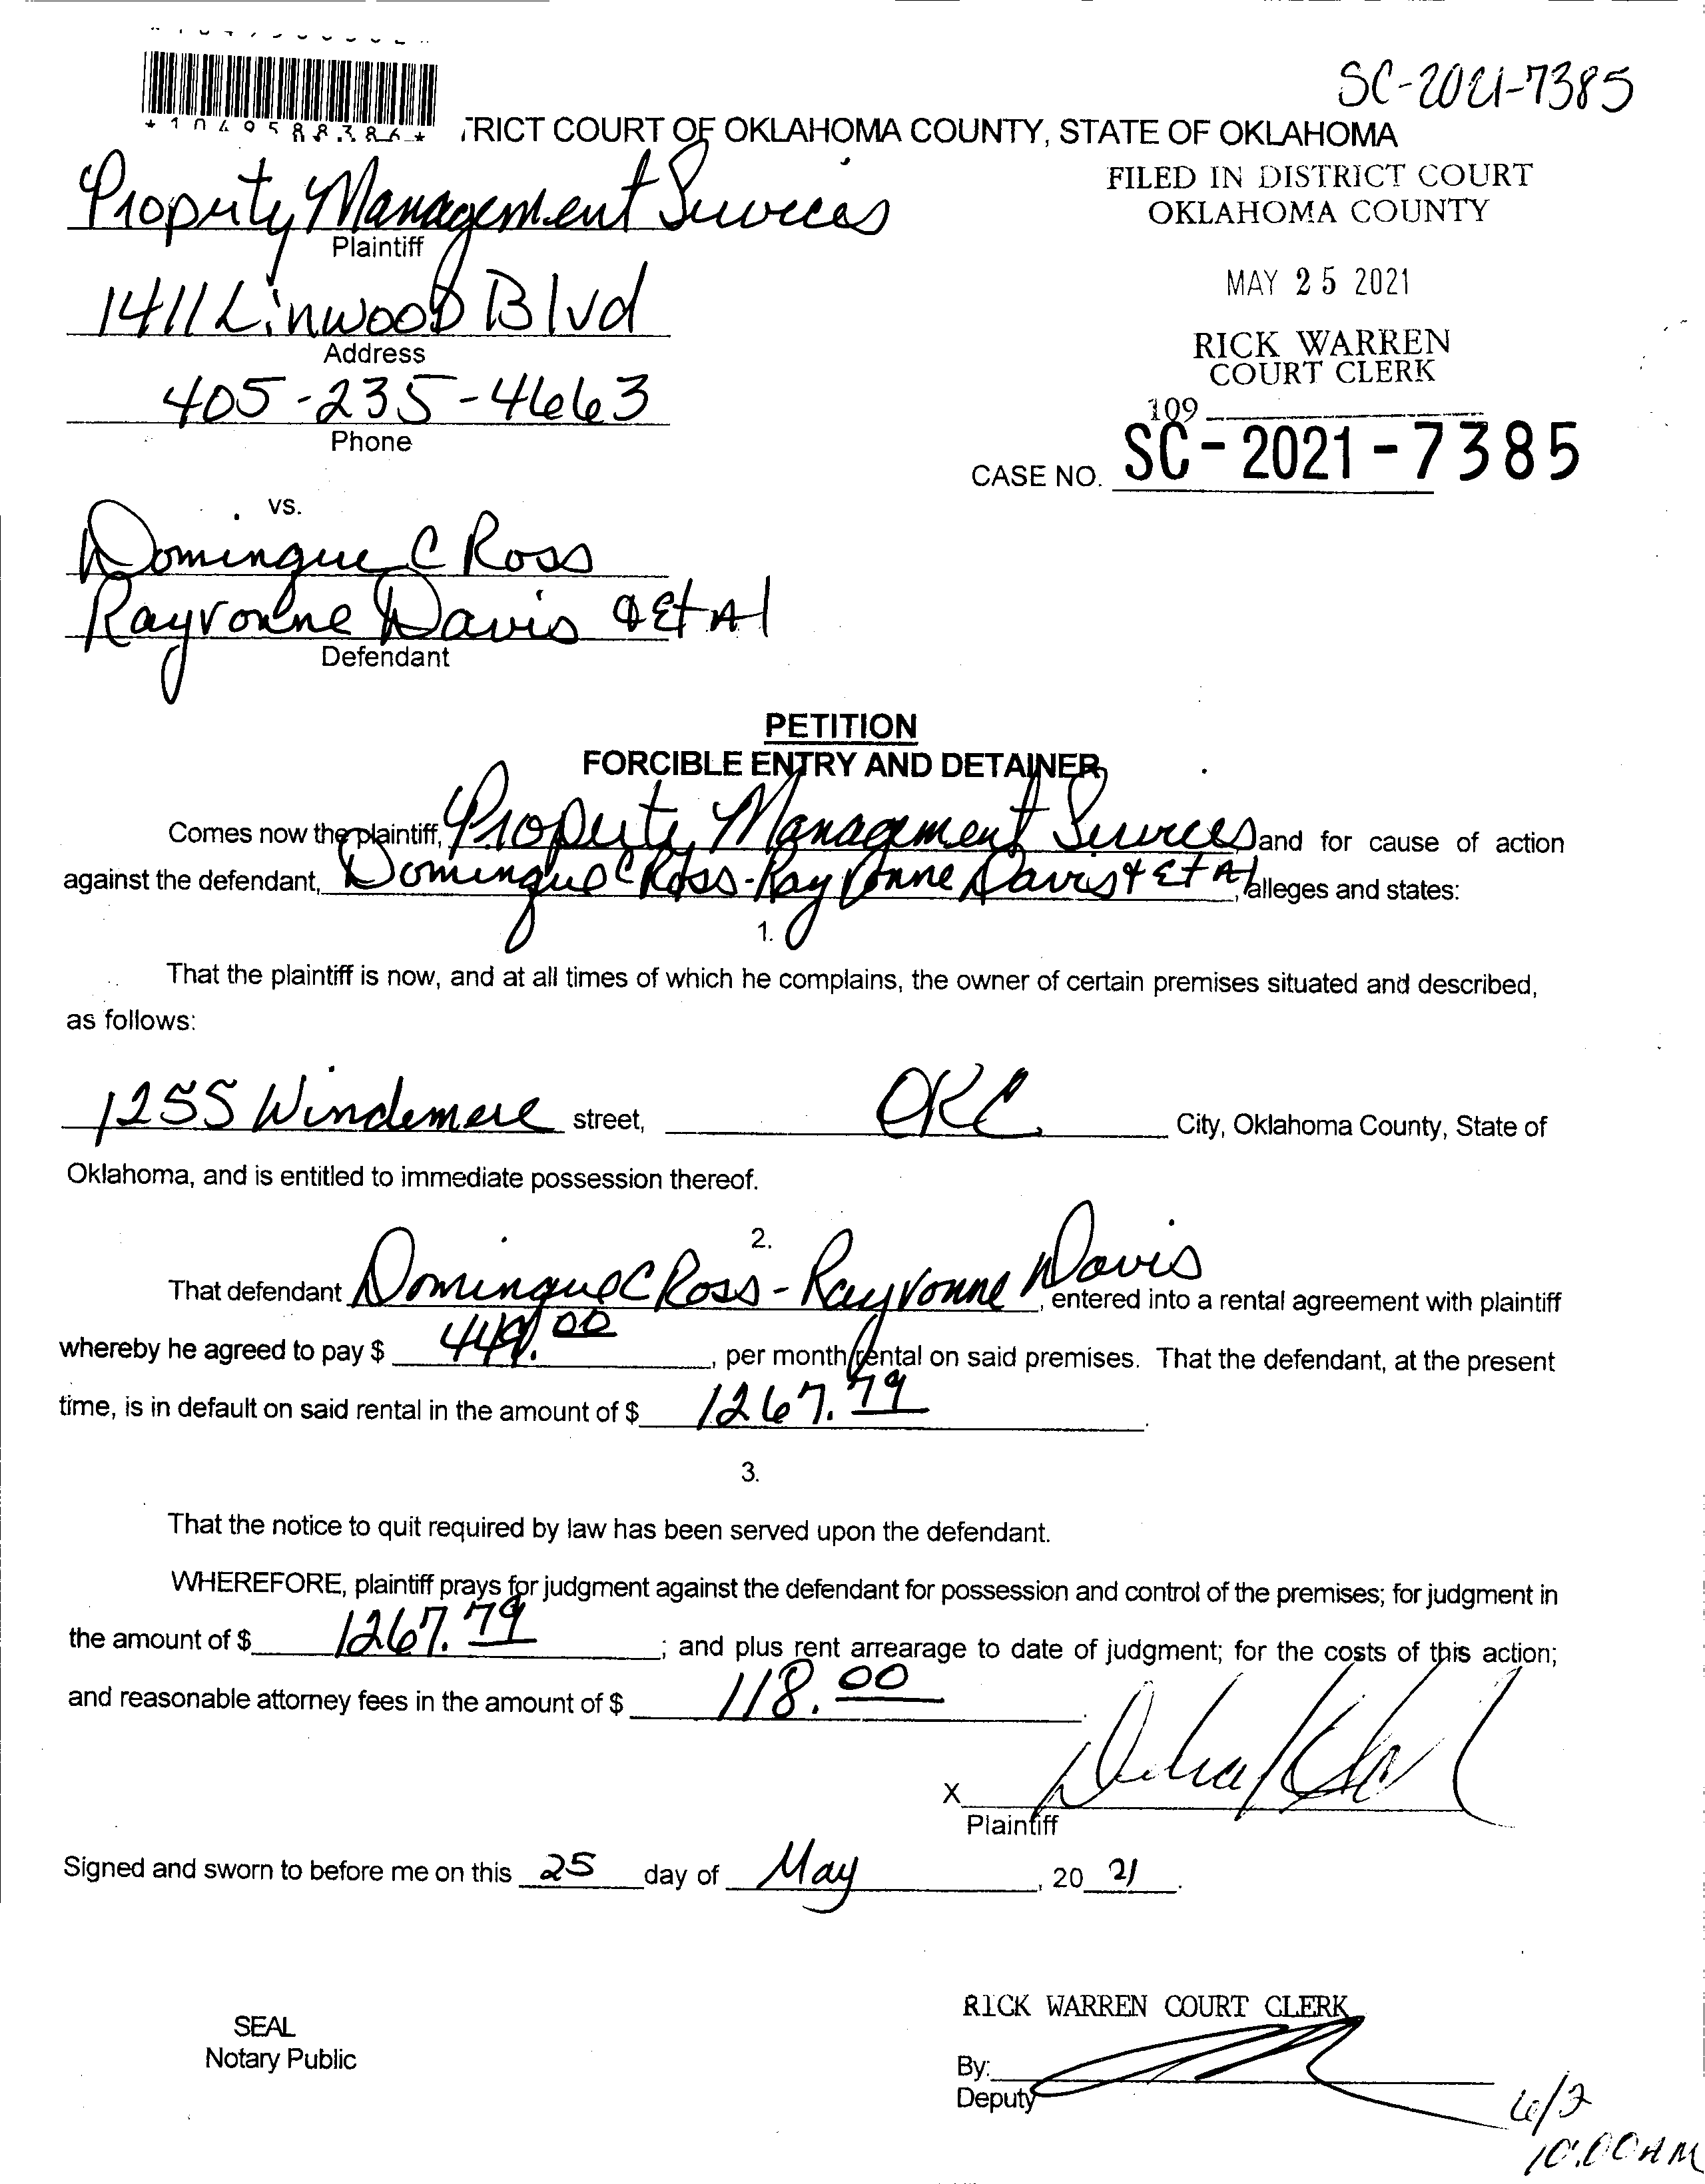 SC-2021-7385
*1049588386*
TRICT COURT OF OKLAHOMA COUNTY, STATE OF OKLAHOMA
Property Management Services
Plaintiff
FILED IN DISTRICT COURT
OKLAHOMA COUNTY
MAY 25 2021
1411 Linwood Blvd
Address
RICK WARREN
COURT CLERK
405-235-4663
Phone
109
CASE NO. SC-2021-7385
vs.
Domingue C Ross
Rayvonne Davis & Et Al
Defendant
PETITION
FORCIBLE ENTRY AND DETAINER
Comes now the plaintiff, Property Management Services and for cause of action
against the defendant, Domingue C Ross-Rayvonne Davis & Et Al, alleges and states:
1.
That the plaintiff is now, and at all times of which he complains, the owner of certain premises situated and described,
as follows:
1255 Windemere street, OKC City, Oklahoma County, State of
Oklahoma, and is entitled to immediate possession thereof.
2.
That defendant Domingue C Ross - Rayvonne Davis, entered into a rental agreement with plaintiff
whereby he agreed to pay $ 449.00, per month rental on said premises. That the defendant, at the present
time, is in default on said rental in the amount of $ 1267.79.
3.
That the notice to quit required by law has been served upon the defendant.
WHEREFORE, plaintiff prays for judgment against the defendant for possession and control of the premises; for judgment in
the amount of $ 1267.79; and plus rent arrearage to date of judgment; for the costs of this action;
and reasonable attorney fees in the amount of $ 118.00.
X
Plaintiff
Signed and sworn to before me on this 25 day of May, 20 21.
RICK WARREN COURT CLERK
SEAL
Notary Public
By:
Deputy
6/2
10:00 AM